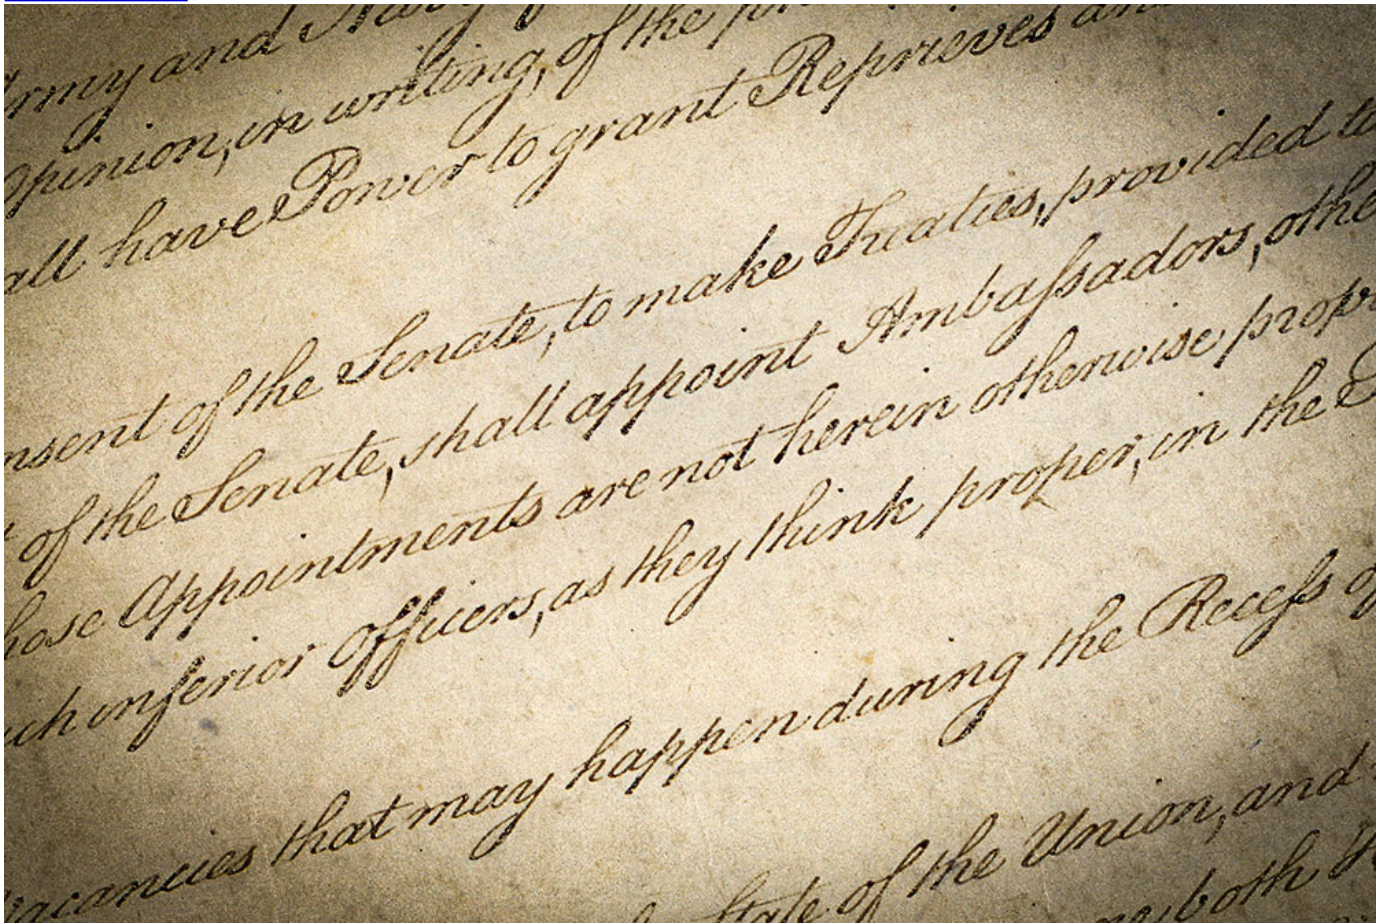 Army and Navy of
Opinion, in writing, of the pr
all have Power to grant Reprieves an
nsent of the Senate, to make Treaties, provided t
of the Senate, shall appoint Ambaſsadors, othe
hose Appointments are not herein otherwise prov
uch inferior Officers, as they think proper, in the
Vacancies that may happen during the Receſs of
State of the Union, and
both H